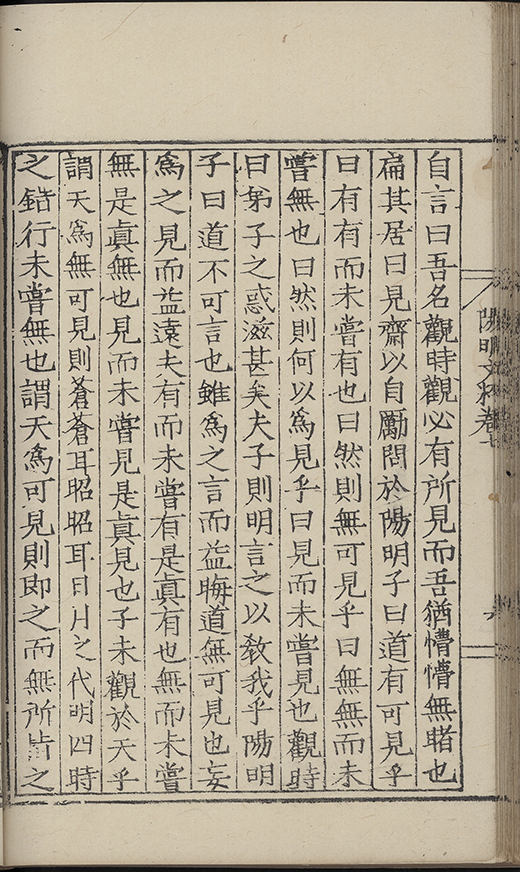 自言曰吾名觀時觀必有所見而吾猶懵懵無睹也
扁其居曰見齋以自勵問於陽明子曰道有可見乎
曰有有而未嘗有也曰然則無可見乎曰無無而未
嘗無也曰然則何以爲見乎曰見而未嘗見也觀時
曰弟子之惑滋甚矣夫子則明言之以敎我乎陽明
子曰道不可言也雖爲之言而益晦道無可見也妄
爲之見而益遠夫有而未嘗有是眞有也無而未嘗
無是眞無也見而未嘗見是眞見也子未觀於天乎
謂天爲無可見則蒼蒼耳昭昭耳日月之代明四時
之錯行未嘗無也謂天爲可見則即之而無所指之
陽明文
卷七